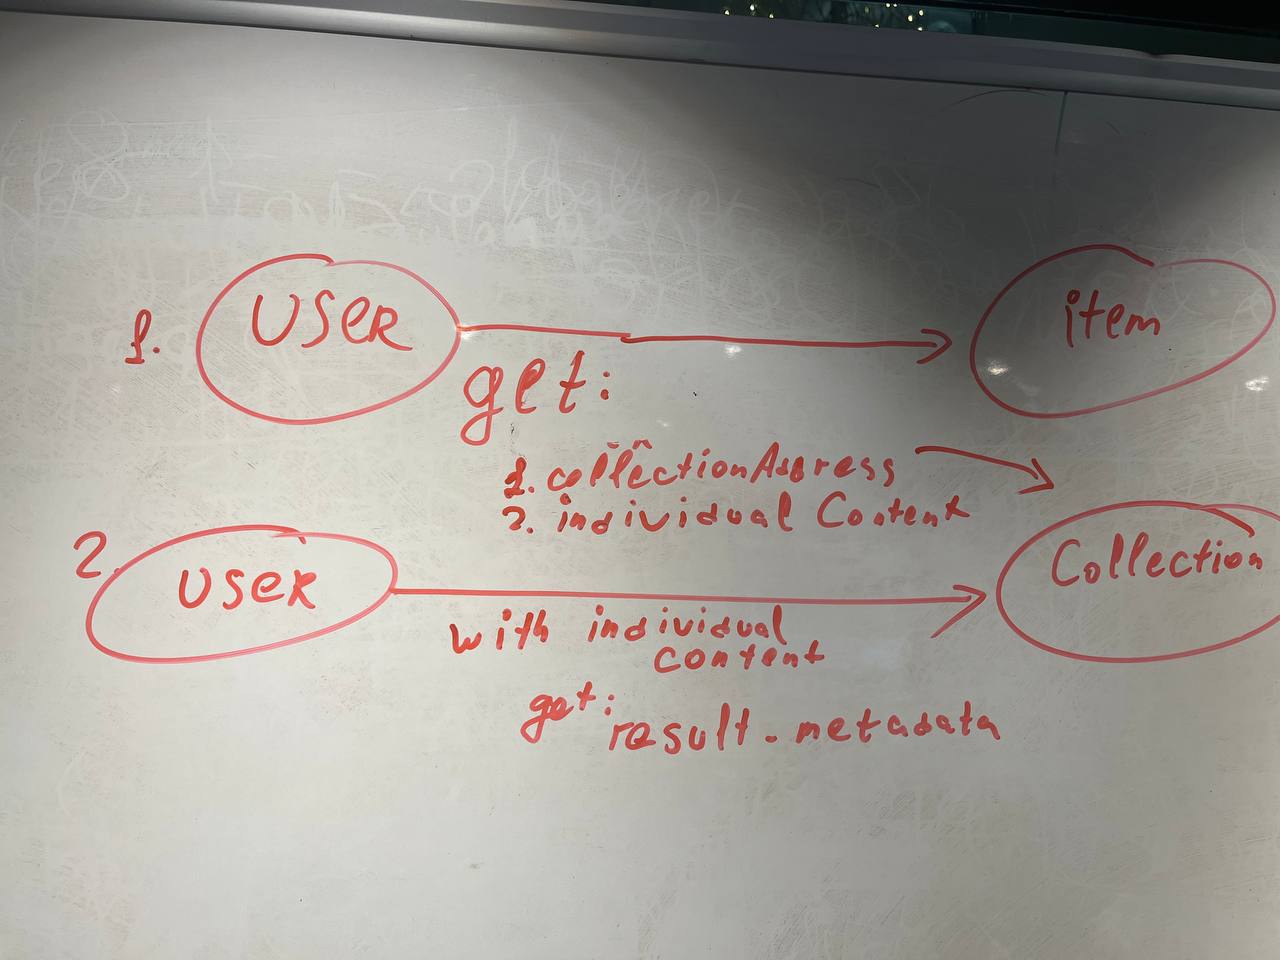 1. USER
item
get:
1. collectionAddress
2. individual Content
2. USER
Collection
with individual
content
get:
result_metadata